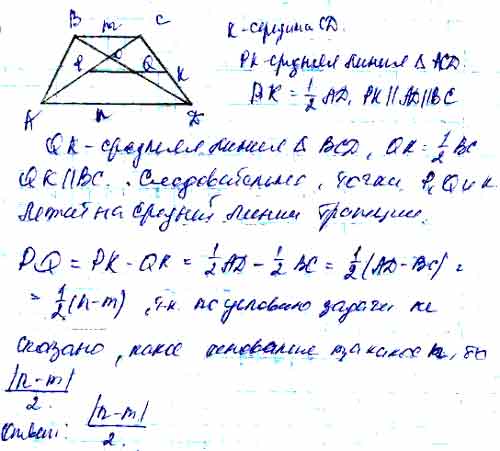 B m C
K - середина CD.
O
PK - средняя линия Δ ACD
P Q K
PK = 1/2 AD, PK || AD || BC
A n D
QK - средняя линия Δ BCD, QK = 1/2 BC
QK || BC. Следовательно, точки P, Q и K
лежат на средней линии трапеции.
PQ = PK - QK = 1/2 AD - 1/2 BC = 1/2 (AD - BC) =
= 1/2 (n - m), т.к. по условию задачи не
сказано, какое основание m, а какое n, то
|n - m|/2.
Ответ: |n - m|/2.